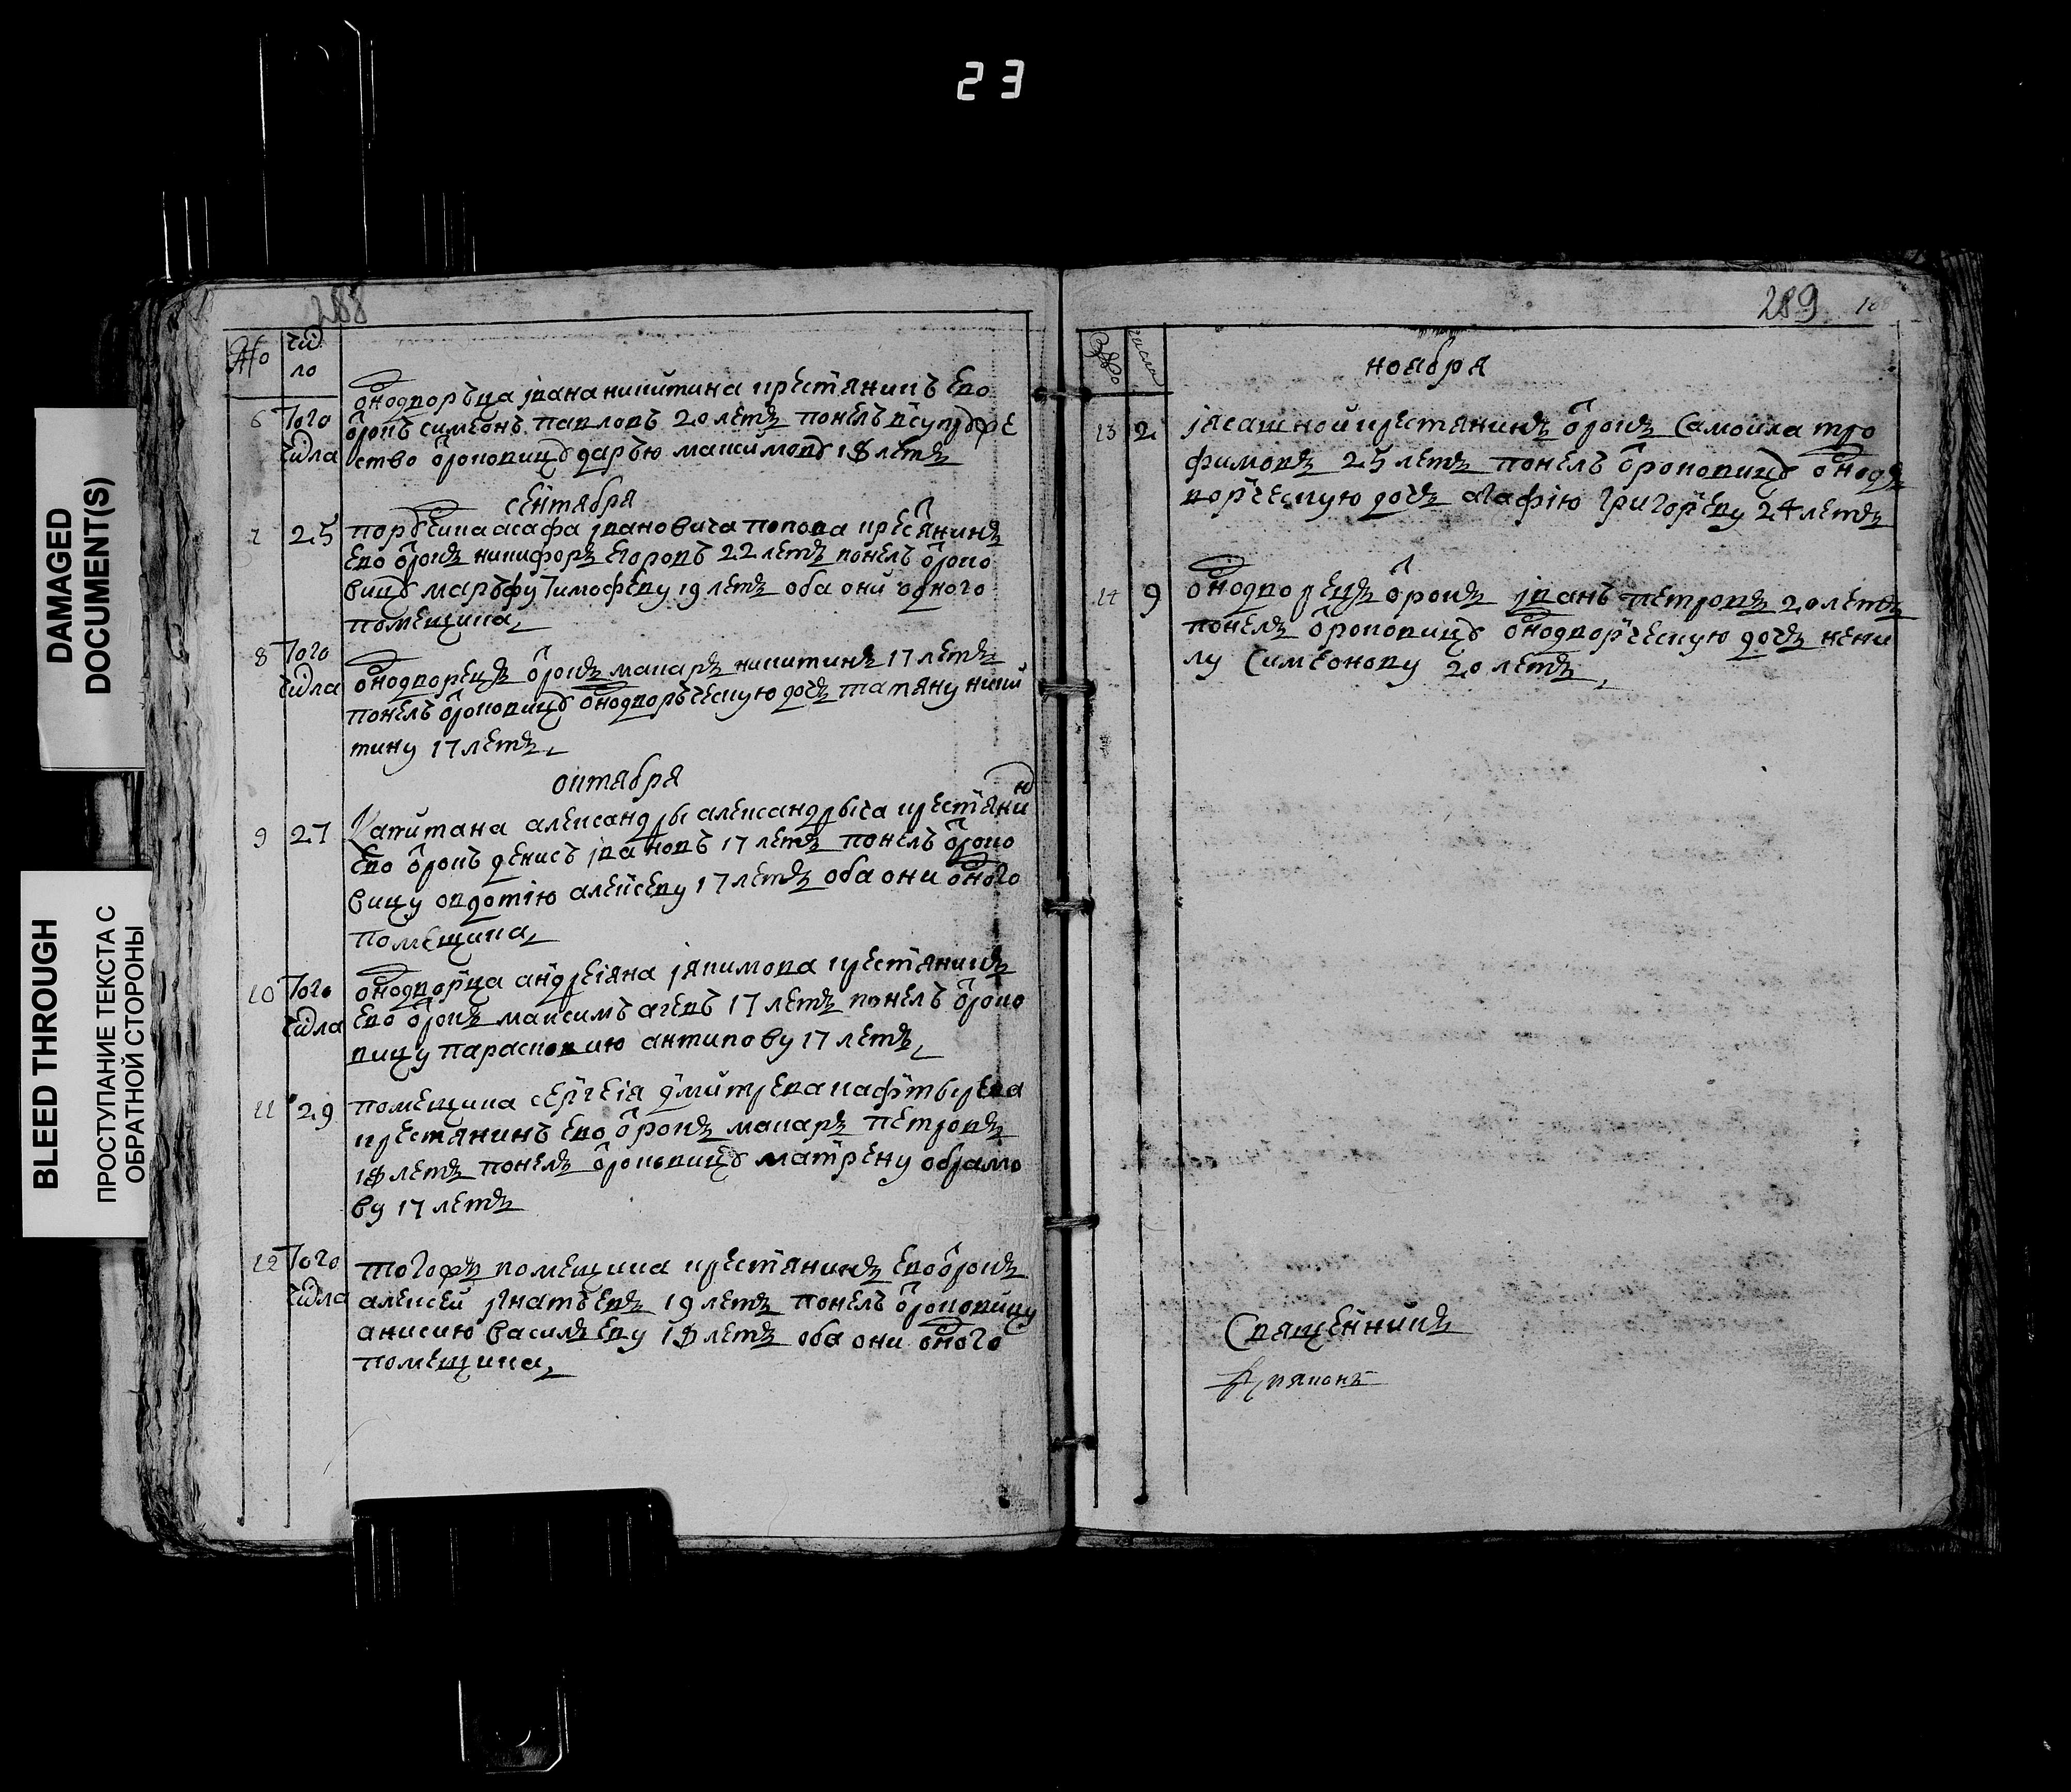 23
DAMAGED
DOCUMENT(S)
BLEED THROUGH
ПРОСТУПАНИЕ ТЕКСТА С
ОБРАТНОЙ СТОРОНЫ
288
число
однодворъца iвана никитина крестянинъ ево
6 Того отрокъ симеонъ павловъ 20 летъ понелъ в супруже
числа ство отроковицу дарью максимову 18 летъ
сентября
7 25 порутчика асафа iвановича попова крестянинъ
ево отрокъ никифоръ егоровъ 22 летъ понелъ отроко
вицу марѣфу тимофееву 19 летъ оба они одного
помещика
8 Того
числа однодворецъ отрокъ макаръ никитинъ 17 летъ
понелъ отроковицу однодворъческую дочь татяну ники
тину 17 летъ
октября
9 27 Капитана александры александрыча крестянинъ
ево отрокъ денисъ iвановъ 17 летъ понелъ отроко
вицу овдотiю алексеву 17 летъ оба они одного
помещика
10 Того однодворца андреiяна iякимова крестянинъ
числа ево отрокъ максимъ агевъ 17 летъ понелъ отроко
вицу парасковию антипову 17 летъ
11 29 помещика сергеiя дмитрева
крестянинъ ево отрокъ макаръ петровъ
18 летъ понелъ отроковицу матрену обрамо
ву 17 летъ
12 Того тогожъ помещика крестянинъ ево отрокъ
числа алексей iгнатьевъ 19 летъ понелъ отроковицу
анисию василъеву 18 летъ оба они одного
помещика
289
188
число
ноября
13 2 iясашной крестянинъ отрокъ Самойла тро
фимовъ 25 летъ понелъ отроковицу однод
ворческую дочь агафiю григореву 24 летъ
14 9 однодворецъ отрокъ iванъ петровъ 20 летъ
понелъ отроковицу однодворческую дочь нени
лу симеонову 20 летъ
Священникъ